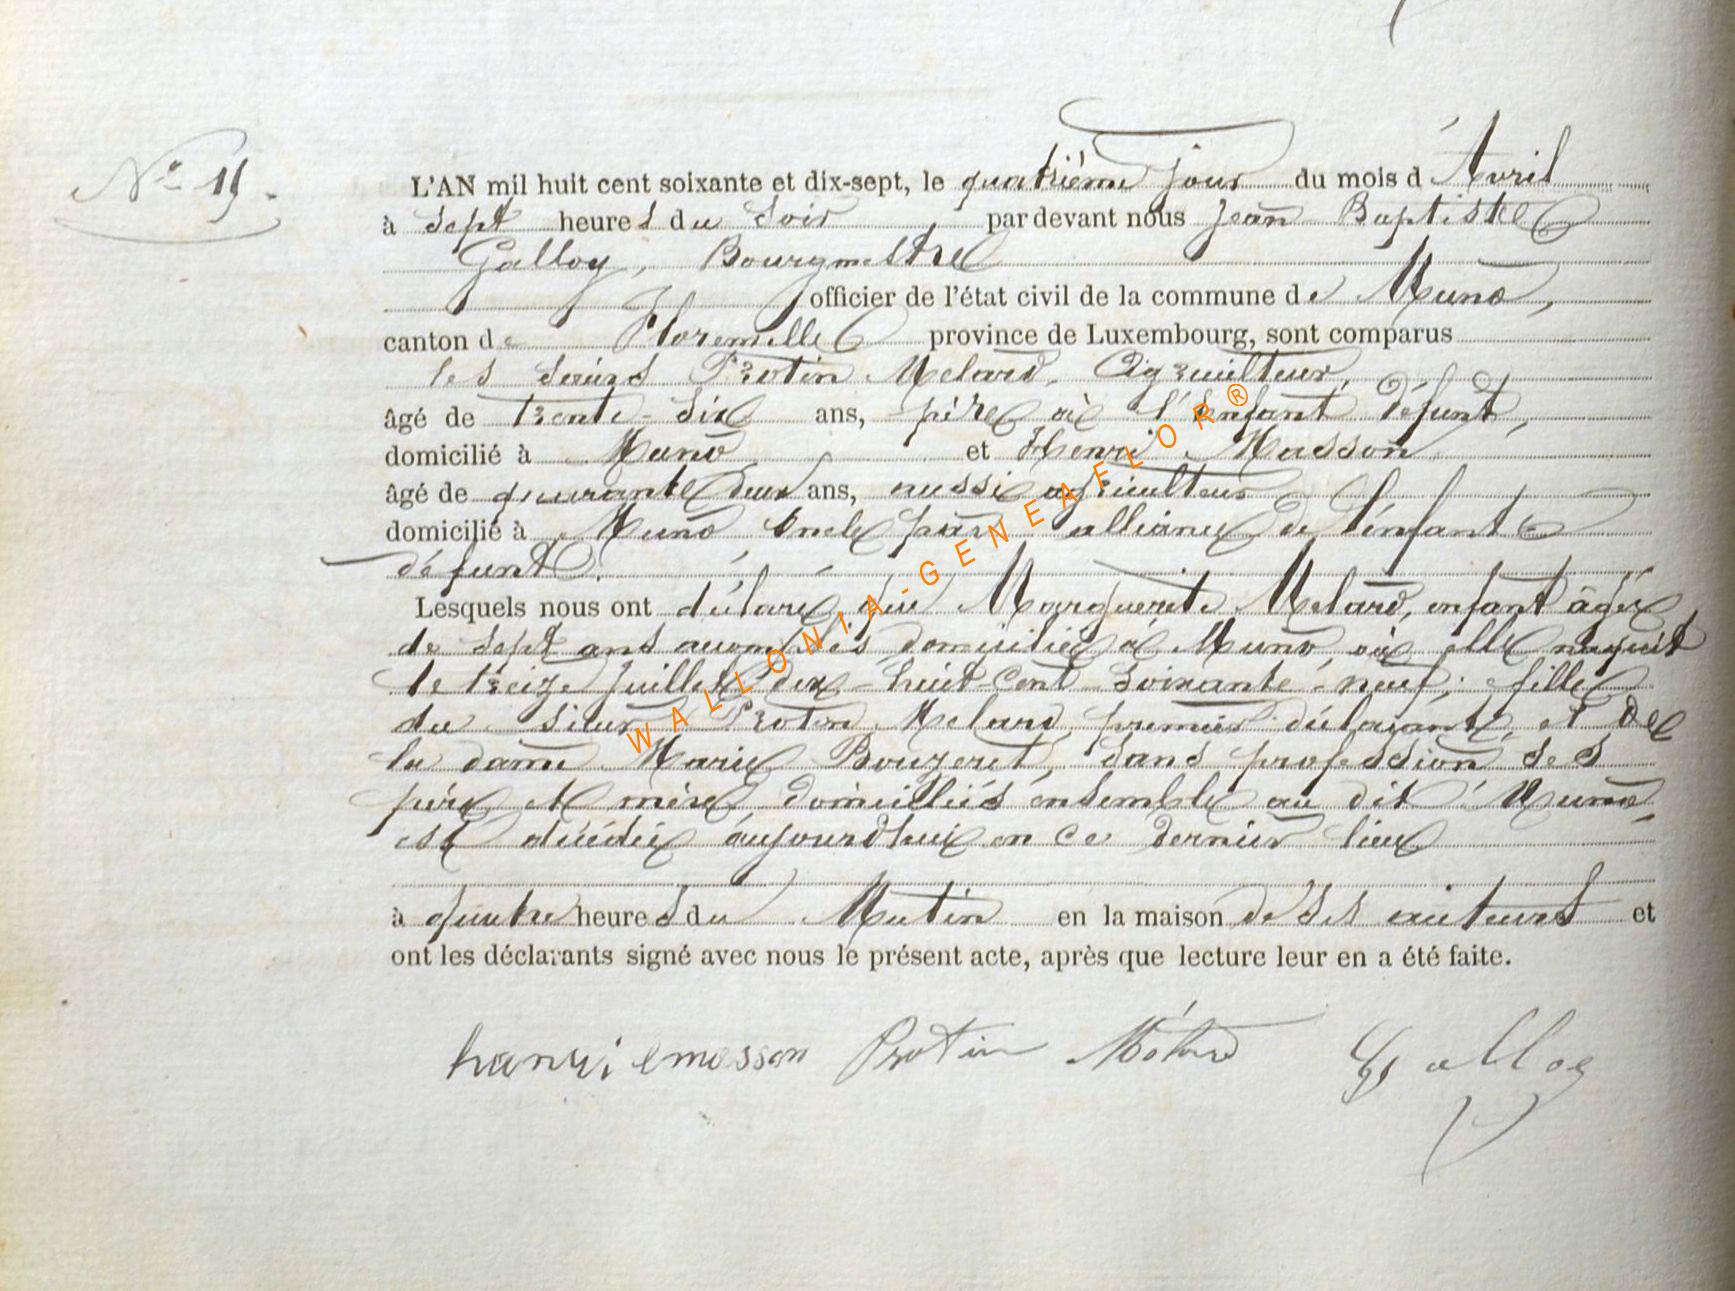 N° 15.
L'AN mil huit cent soixante et dix-sept, le quatrième jour du mois d'Avril
à sept heures du Soir par devant nous Jean Baptiste
Galloy, Bourgmestre
officier de l'état civil de la commune de Muno,
canton de Florenville province de Luxembourg, sont comparus
les sieurs Protin Melard, Agriculteur,
âgé de Trente-six ans, père à l'Enfant défunt,
domicilié à Muno et Henri Masson
âgé de quarante deux ans, aussi agriculteur
domicilié à Muno Oncle par alliance de l'enfant
défunt.
Lesquels nous ont déclaré que Marguerite Melard, enfant âgée
de sept ans accomplis, domiciliée à Muno, où elle naquit
le treize Juillet dix-huit-cent-soixante-neuf; fille
du sieur Protin Melard, premier déclarant, et de
la dame Marie Bouzeret, sans profession ses
père et mère domiciliés ensemble au dit Muno,
est décédée aujourd'hui en ce dernier lieu
à quatre heures du Matin en la maison de ses auteurs et
ont les déclarants signé avec nous le présent acte, après que lecture leur en a été faite.
henri emasson Protin Mélard Galloy
WALLONIA-GENEAFLOR®